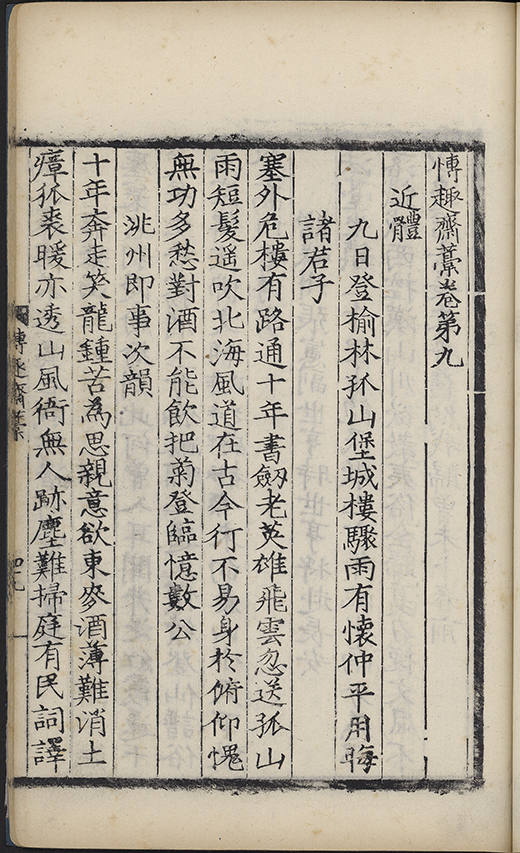 愽趣齋藁卷第九
近體
九日登榆林孤山堡城樓驟雨有懷仲平用晦
諸君子
塞外危樓有路通十年書劒老英雄飛雲忽送孤山
雨短髮遥吹北海風道在古今行不易身於俯仰愧
無功多愁對酒不能飲把菊登臨憶數公
洮州即事次韻
十年奔走笑龍鍾苦為思親意欲東麥酒薄難消土
瘴狐裘暖亦透山風衙無人跡塵難掃庭有民詞譯